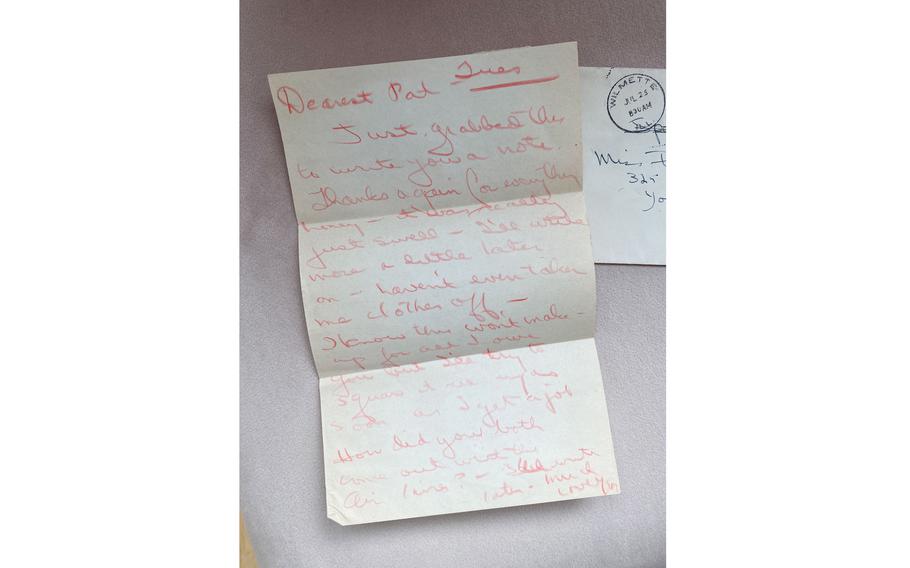 Dearest Pat Tues
Just grabbed this
to write you a note.
Thanks again for everything
honey - t'was really
just swell - I'll write
more a little later
on - haven't even taken
me clothes off, -
I know this won't make-
up for all I owe
you but I'll try to
square it all up as
soon as I get a job
How did you both
come out with the
Air lines? - I'll write
later - Much
love
WILMETTE
JUL 25
8 30 AM
Miss
325
Yo